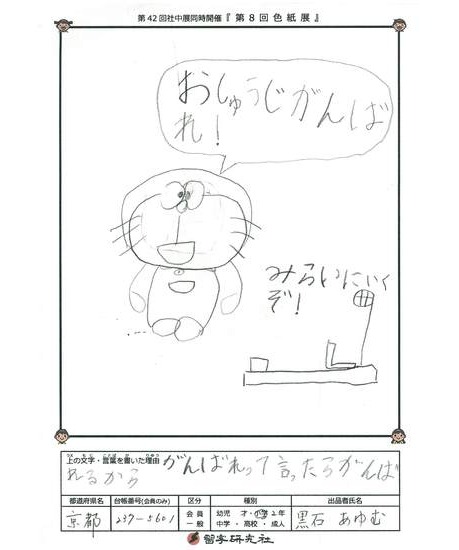 第42回社中展同時開催『第8回色紙展』
おしゅうじがんば
れ！
みらいにいく
ぞ！
上の文字・言葉を書いた理由 がんばれって言ったらがんば
れるから
都道府県名 台帳番号(会員のみ) 区分 種別 出品者氏名
京都 237-5601 会員 一般 幼児 才・小学2年 中学・高校・成人 黒石 あゆむ
書字研究社